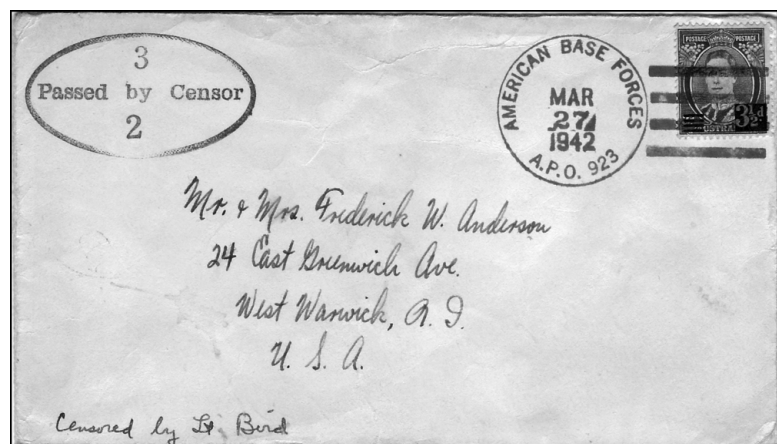 3
Passed by Censor
2
AMERICAN BASE FORCES
MAR
27
1942
A.P.O. 923
POSTAGE POSTAGE
3½D
Mr. & Mrs. Frederick W. Anderson
24 East Greenwich Ave.
West Warwick, R. I.
U. S. A.
Censored by Lt Bird